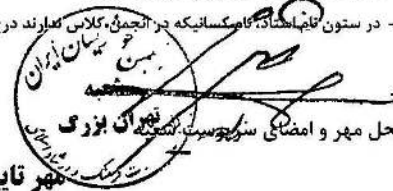 - در ستون نام استاد، نام کسانیکه در انجمن کلاس ندارند درج
انجمن خوشنویسان ایران
شعبه
تهران بزرگ
محل مهر و امضای سرپرست شعبه
مهر تای